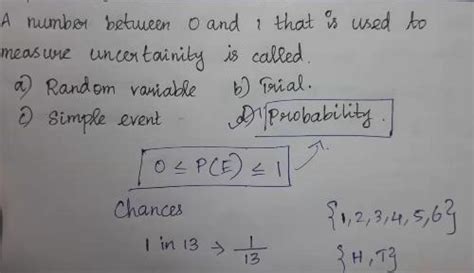 A number between 0 and 1 that is used to
measure uncertainity is called.
a) Random variable b) Trial.
c) Simple event d) Probability.
0 ≤ P(E) ≤ 1
Chances {1,2,3,4,5,6}
1 in 13 → 1/13 {H,T}